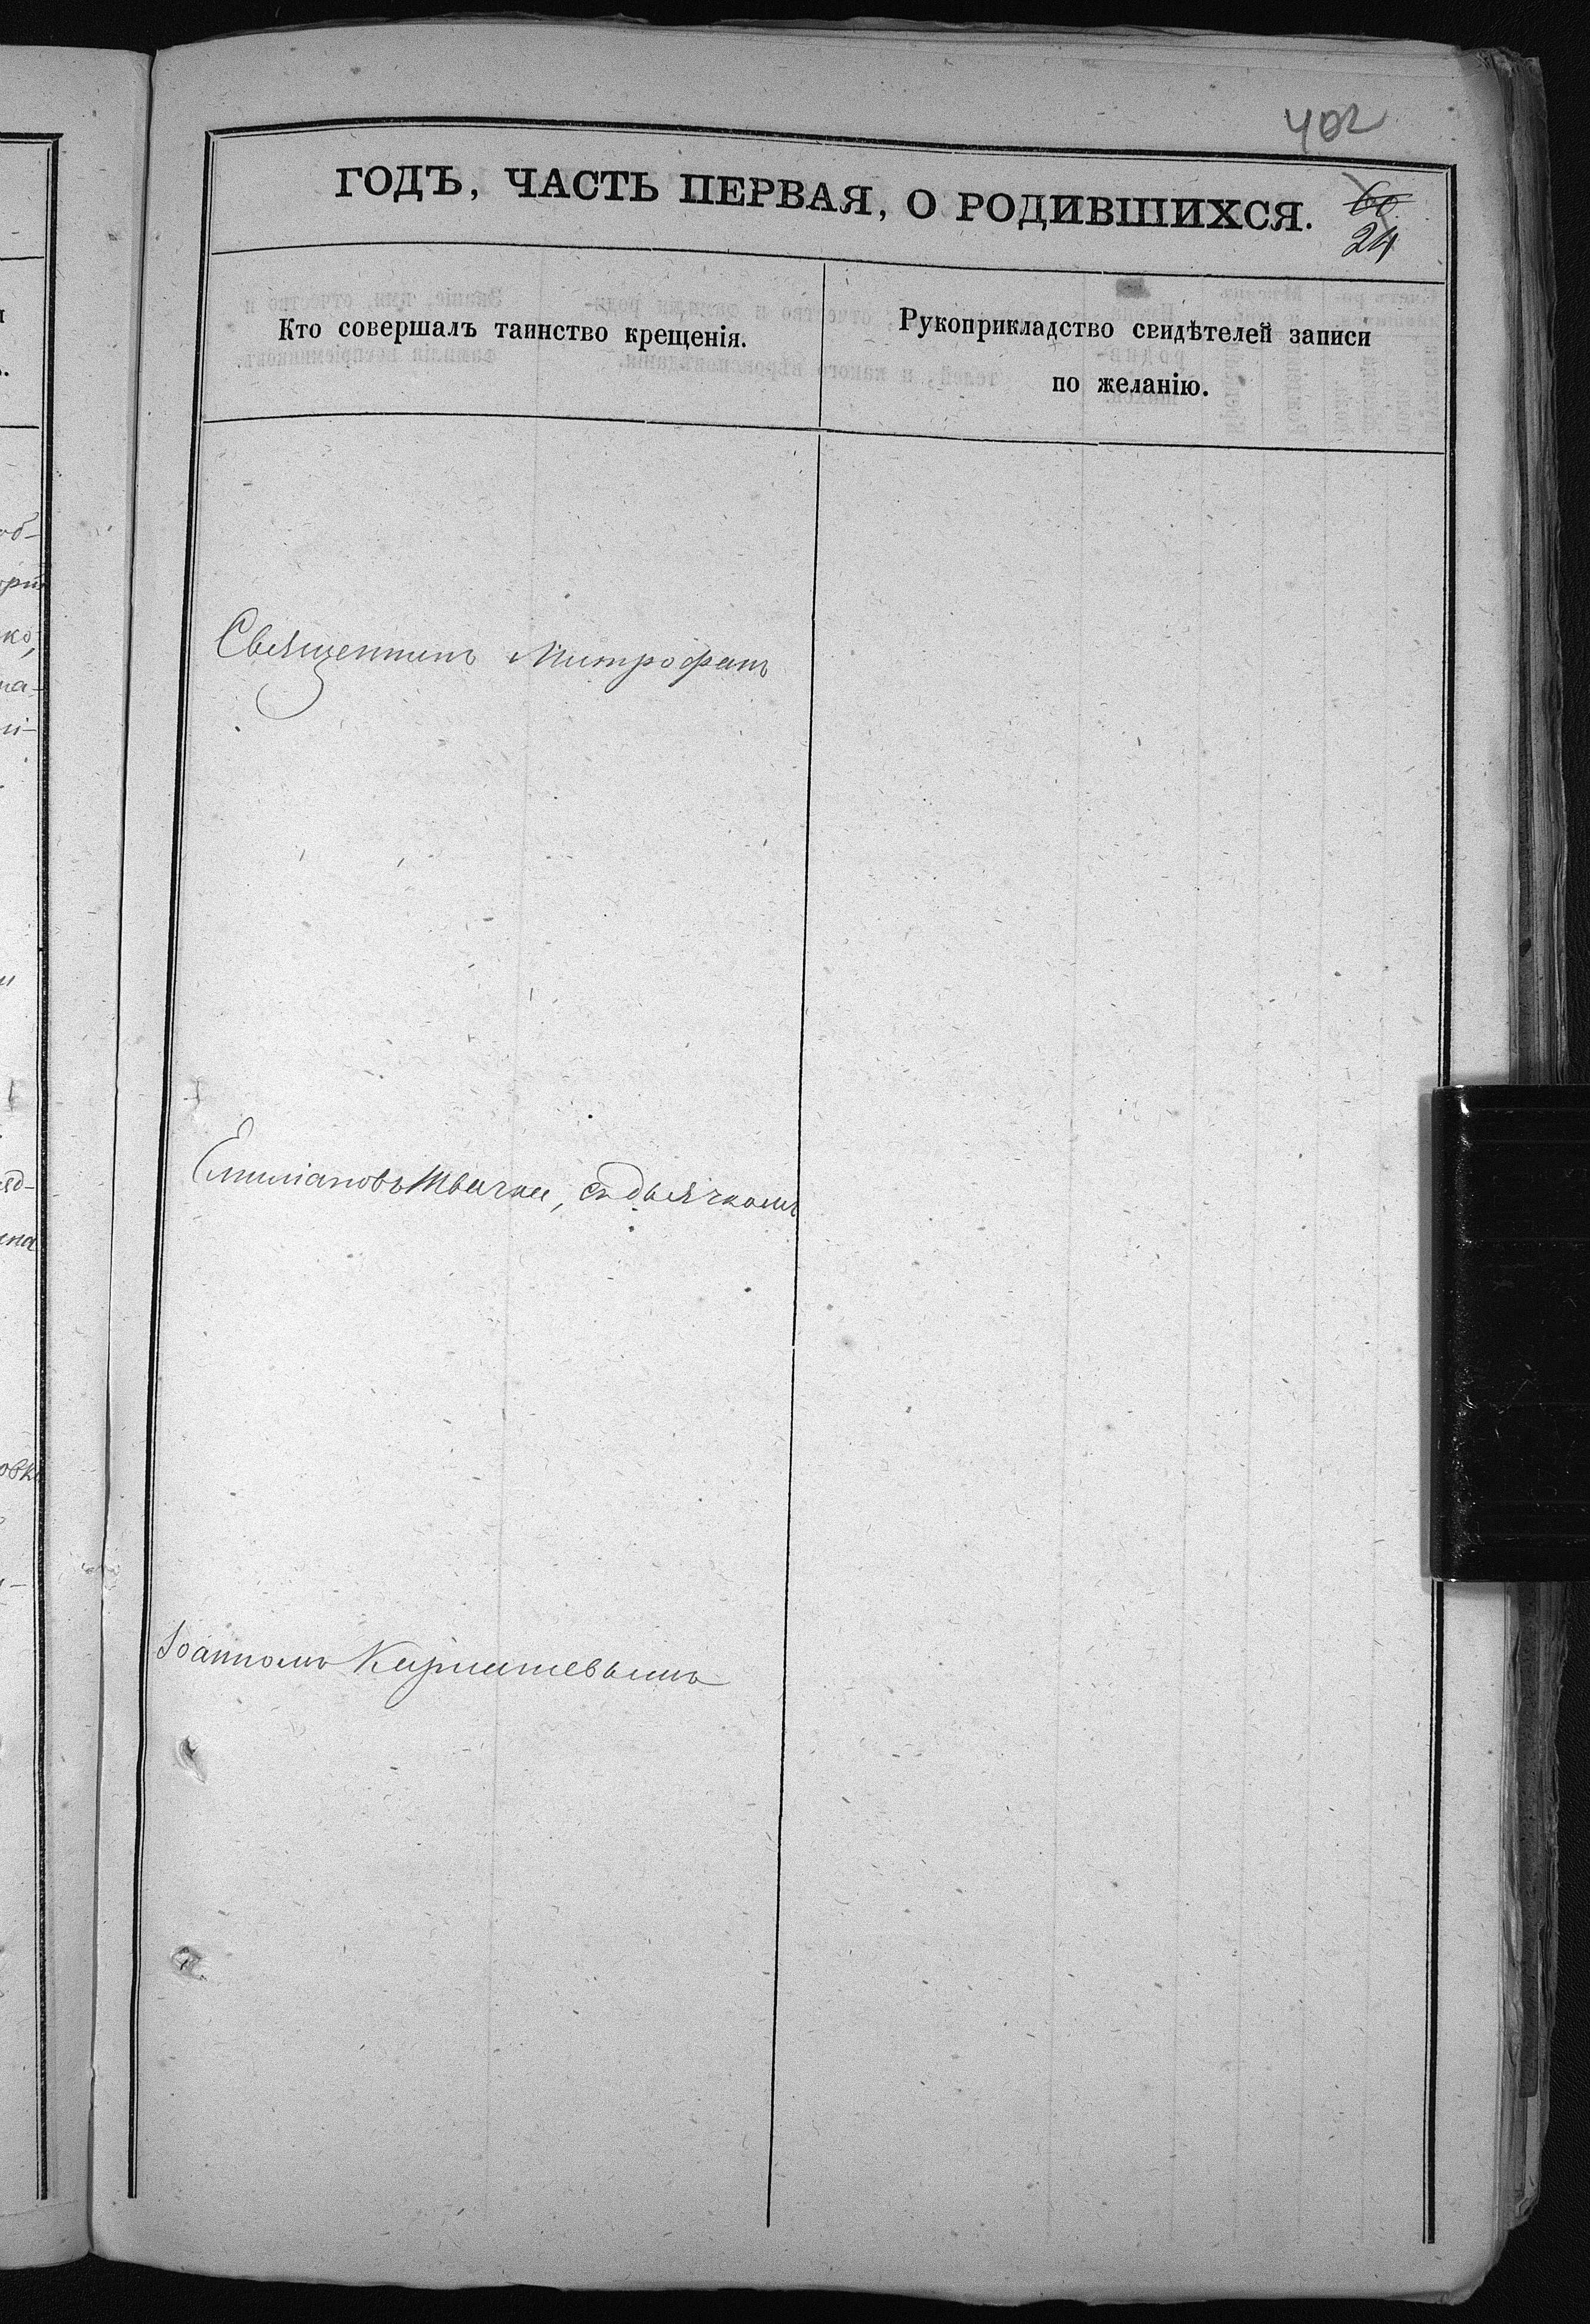 402
ГОДЪ, ЧАСТЬ ПЕРВАЯ, О РОДИВШИХСЯ.
60
24
Кто совершалъ таинство крещенія.
Рукоприкладство свидѣтелей записи
по желанію.
Священникъ Митрофанъ
съ дьячкомъ
Іоанномъ